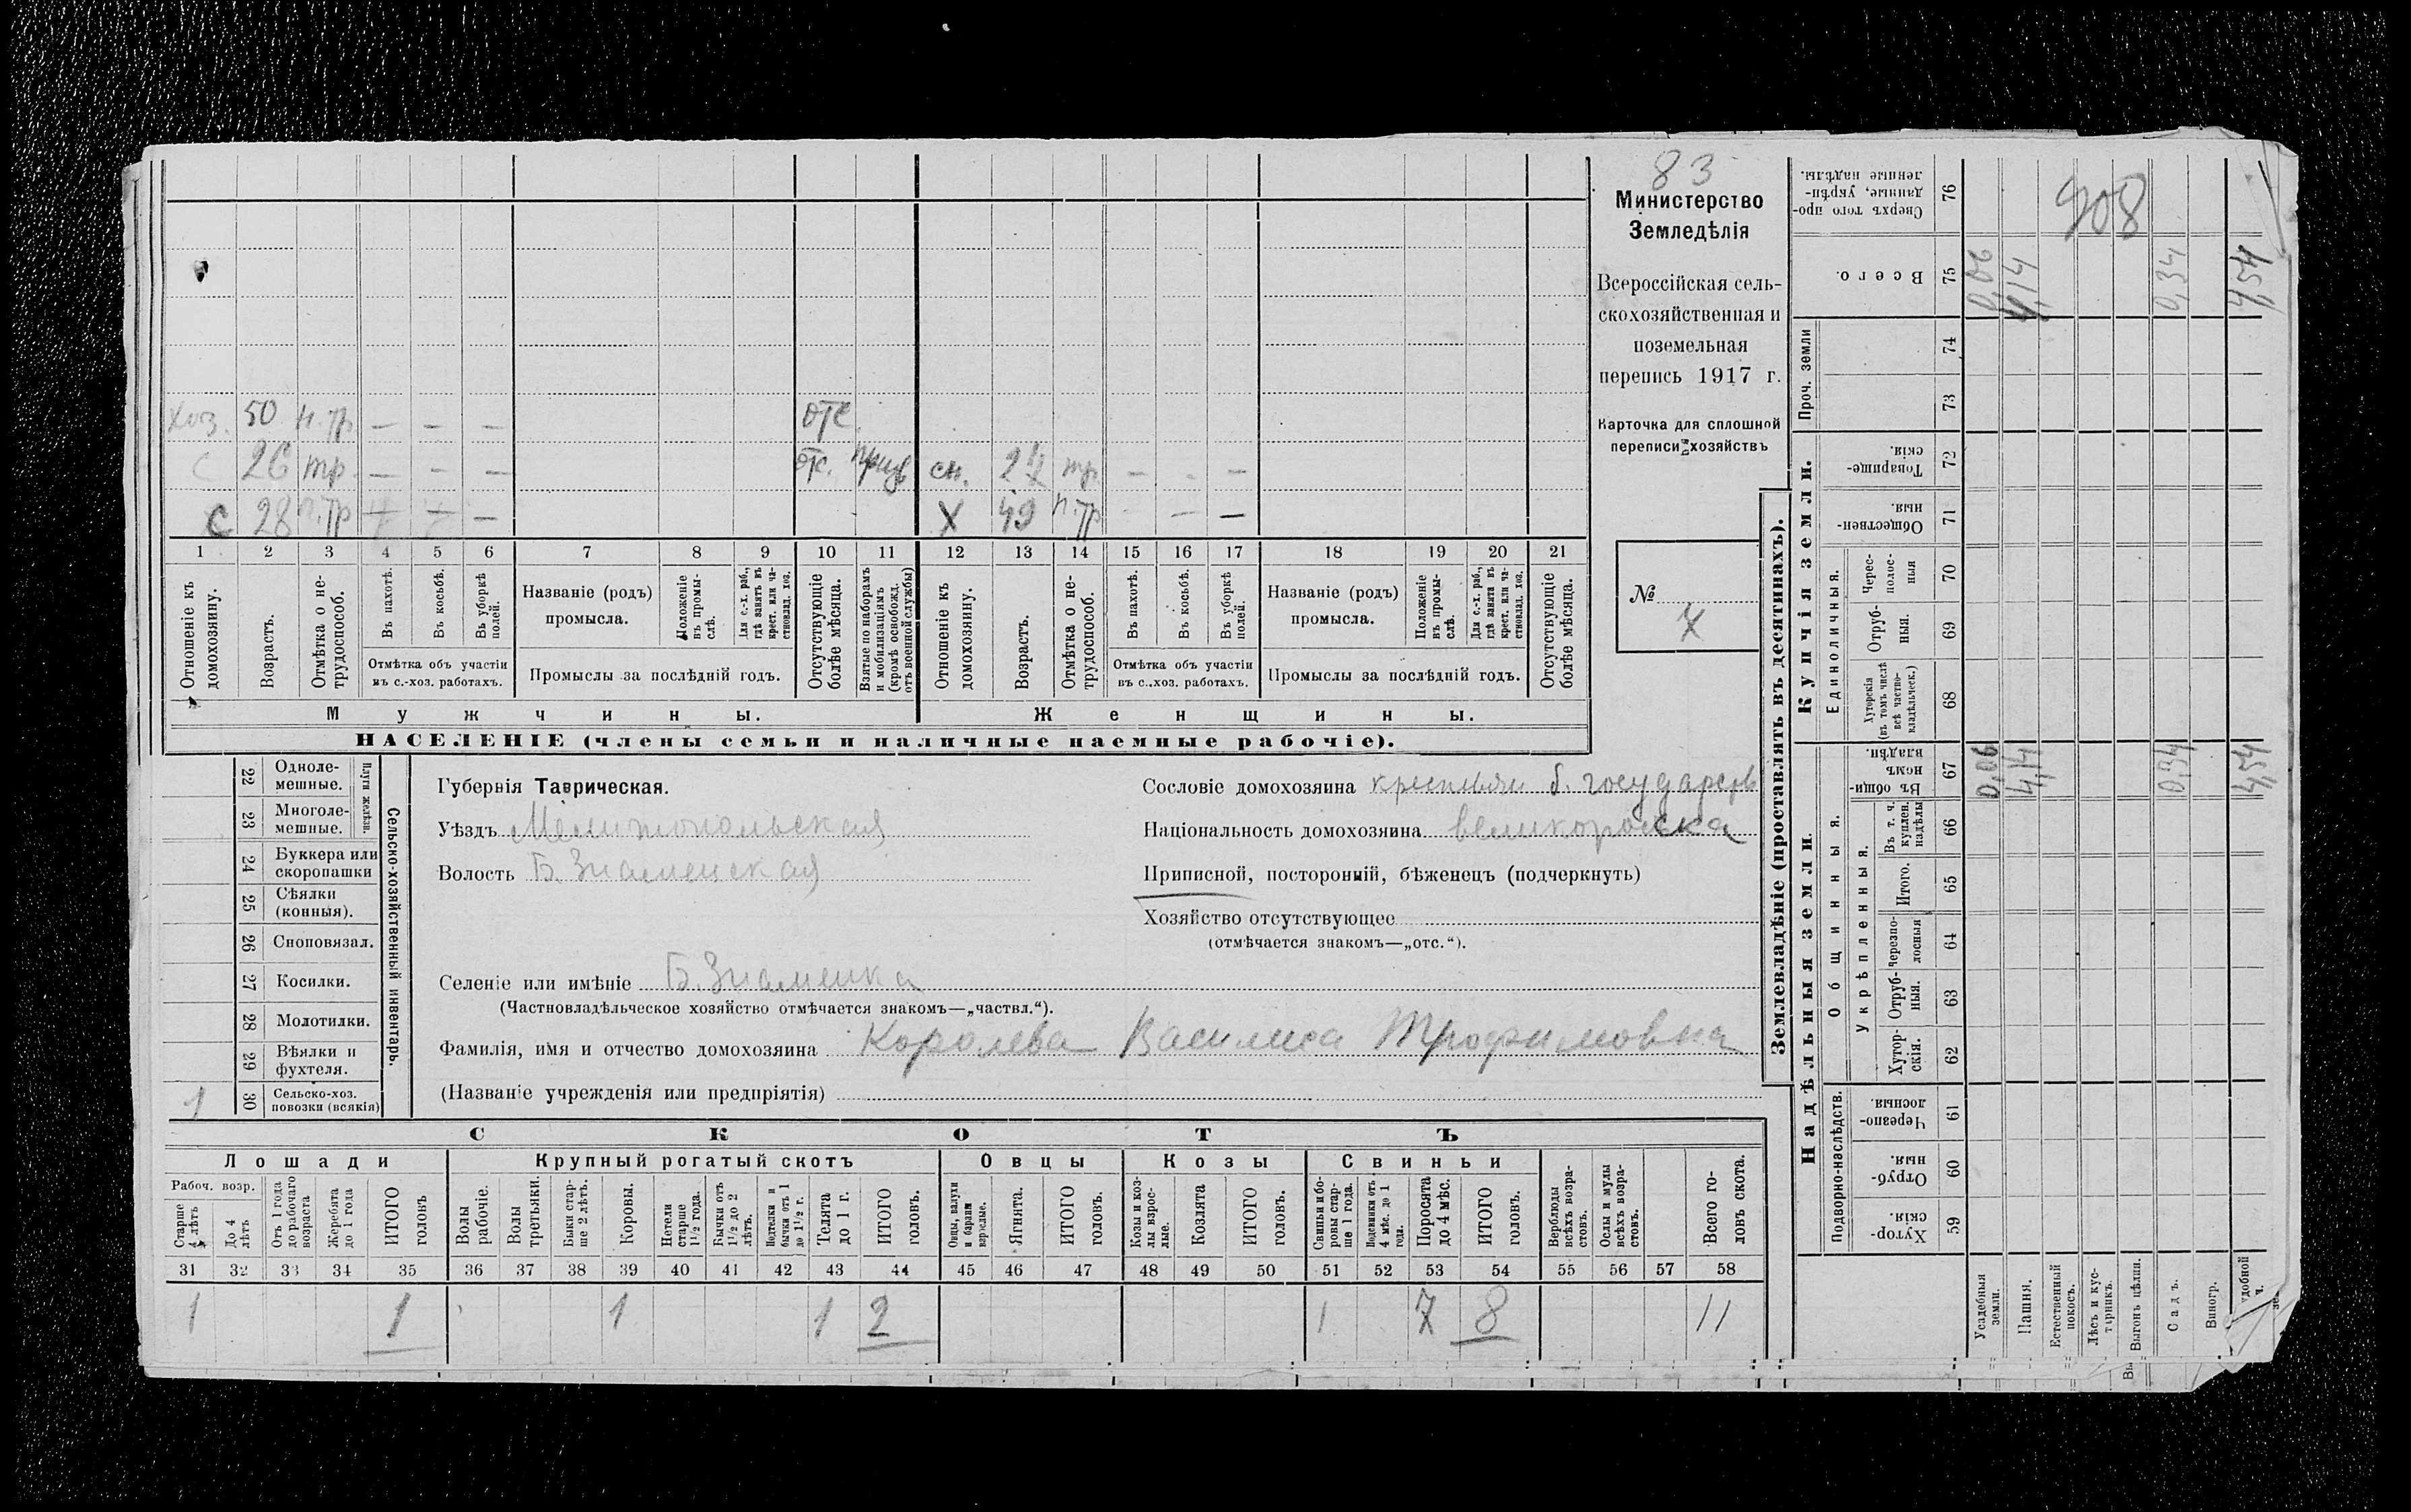 83
Министерство
Земледѣлія
Всероссійская сель-
скохозяйственная и
поземельная
перепись 1917 г.
Карточка для сплошной
переписи хозяйствъ
№
7
хоз. 50 н.тр — — — отс
с 26 тр — — — отс. призв сн. 24 тр — - —
с 28 п.тр + + — Х 49 п.тр — —
1 2 3 4 5 6 7 8 9 10 11 12 13 14 15 16 17 18 19 20 21
Отношеніе къ домохозяину.
Возрастъ.
Отмѣтка о не-трудоспособ.
Въ пахотѣ.
Въ косьбѣ.
Въ уборкѣ полей.
Названіе (родъ) промысла.
Положеніе въ промы-слѣ.
Для с.-х. раб., гдѣ занятъ въ крест. или ча-стновлад. хоз.
Отсутствующіе болѣе мѣсяца.
Взятые по наборамъ и мобилизаціямъ (кромѣ освобожд. отъ военной службы)
Отношеніе къ домохозяину.
Возрастъ.
Отмѣтка о не-трудоспособ.
Въ пахотѣ.
Въ косьбѣ.
Въ уборкѣ полей.
Названіе (родъ) промысла.
Положеніе въ промы-слѣ.
Для с.-х. раб., гдѣ занята въ крест. или ча-стновлад. хоз.
Отсутствующіе болѣе мѣсяца.
Отмѣтка объ участіи въ с.-хоз. работахъ.
Промыслы за послѣдній годъ.
Отмѣтка объ участіи въ с.-хоз. работахъ.
Промыслы за послѣдній годъ.
Мужчины.
Женщины.
НАСЕЛЕНІЕ (члены семьи и наличные наемные рабочіе).
Сельско-хозяйственный инвентарь.
Плуги желѣзн.
22 Одноле-мешные.
23 Многоле-мешные.
24 Буккера или скоропашки
25 Сѣялки (конныя).
26 Сноповязал.
27 Косилки.
28 Молотилки.
29 Вѣялки и фухтеля.
1 30 Сельско-хоз. повозки (всякія)
Губернія Таврическая.
Уѣздъ Мелитопольская
Волость Б. Знаменская
Селеніе или имѣніе Б. Знаменка
(Частновладѣльческое хозяйство отмѣчается знакомъ—„частвл.“).
Фамилія, имя и отчество домохозяина Королева Василиса Трофимовна
(Названіе учрежденія или предпріятія)
Сословіе домохозяина крестьян б. государств
Національность домохозяина великоросска
Приписной, посторонній, бѣженецъ (подчеркнуть)
Хозяйство отсутствующее
(отмѣчается знакомъ—„отс.“).
СКОТЪ
Лошади
Крупный рогатый скотъ
Овцы
Козы
Свиньи
Рабоч. возр.
Старше 4 лѣтъ
До 4 лѣтъ
Отъ 1 года до рабочаго возраста
Жеребята до 1 года
ИТОГО головъ
Волы рабочіе.
Волы третьяки.
Быки стар-ше 2 лѣтъ.
Коровы.
Нетели старше 1½ года.
Бычки отъ 1½ до 2 лѣтъ.
Нетелки и бычки отъ 1 до 1½ г.
Телята до 1 г.
ИТОГО головъ.
Овцы, валухи и бараны взрослые.
Ягнята.
ИТОГО головъ.
Козы и коз-лы взрос-лые.
Козлята
ИТОГО головъ.
Свиньи и бо-ровы стар-ше 1 года.
Подсвинки отъ 4 мѣс. до 1 года.
Поросята до 4 мѣс.
ИТОГО головъ.
Верблюды всѣхъ возра-стовъ.
Ослы и мулы всѣхъ возра-стовъ.
Всего го-ловъ скота.
31 32 33 34 35 36 37 38 39 40 41 42 43 44 45 46 47 48 49 50 51 52 53 54 55 56 57 58
1 1 1 1 2 1 7 8 11
Землевладѣніе (проставлять въ десятинахъ).
Надѣльныя земли.
Купчія земли.
Проч. земли
Подворно-наслѣдств.
Общинныя.
Укрѣпленныя.
Единоличныя.
Сверхъ того про-данные, укрѣп-ленные надѣлы. 76
Всего. 75
74
73
Товарище-скія. 72
Обществен-ныя. 71
Черес-полос-ныя 70
Отруб-ныя. 69
Хуторскія (въ томъ числѣ всѣ частно-владѣльческ.) 68
Въ общи-номъ владѣн. 67
Въ т. ч. куплен. надѣлы 66
Итого. 65
Черезпо-лосныя 64
Отруб-ныя. 63
Хутор-скія. 62
Черезпо-лосныя. 61
Отруб-ныя. 60
Хутор-скія. 59
908
0,06 4,14 0,34 4,54
0,06 4,14 0,34 4,54
Усадебныя земли.
Пашня.
Естественный покосъ.
Лѣсъ и кус-тарникъ.
Выгонъ цѣлин.
Садъ.
Виногр.